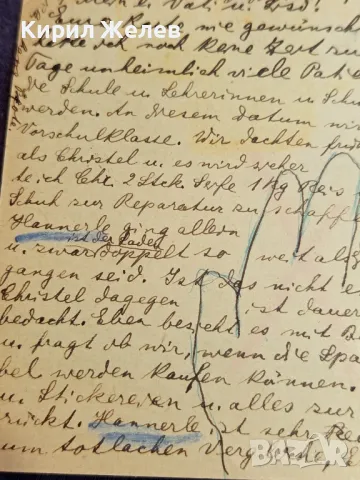 Кирил Желев
u. Vati u. Josd!
Karte nie gewünscht
hatte ich noch keine Zeit zu
Tage unheimlich viele Pati
de Schule u. Lehrerinnen u. Schü
werden. An diesem Datum wi
Vorschulklasse. Wir dachten früh
als Christel u. es wird sicher
te ich Chr. 2 Stck. Seife 1 Kg Reis
Schuh zur Reparatur zu schaff
Hannerle ging allein
ist der Laden
u. zwar doppelt so weit als
gangen seid. Ist das nicht e
Christel dagegen ist dauer
bedacht. Eben bespeht es mit B
u. fragt ob wir, wenn die Spa
bel werden kaufen können.
u. Stickereien u. alles zur
rückt. Hannerle ist sehr
um totlachen
bazar.bg